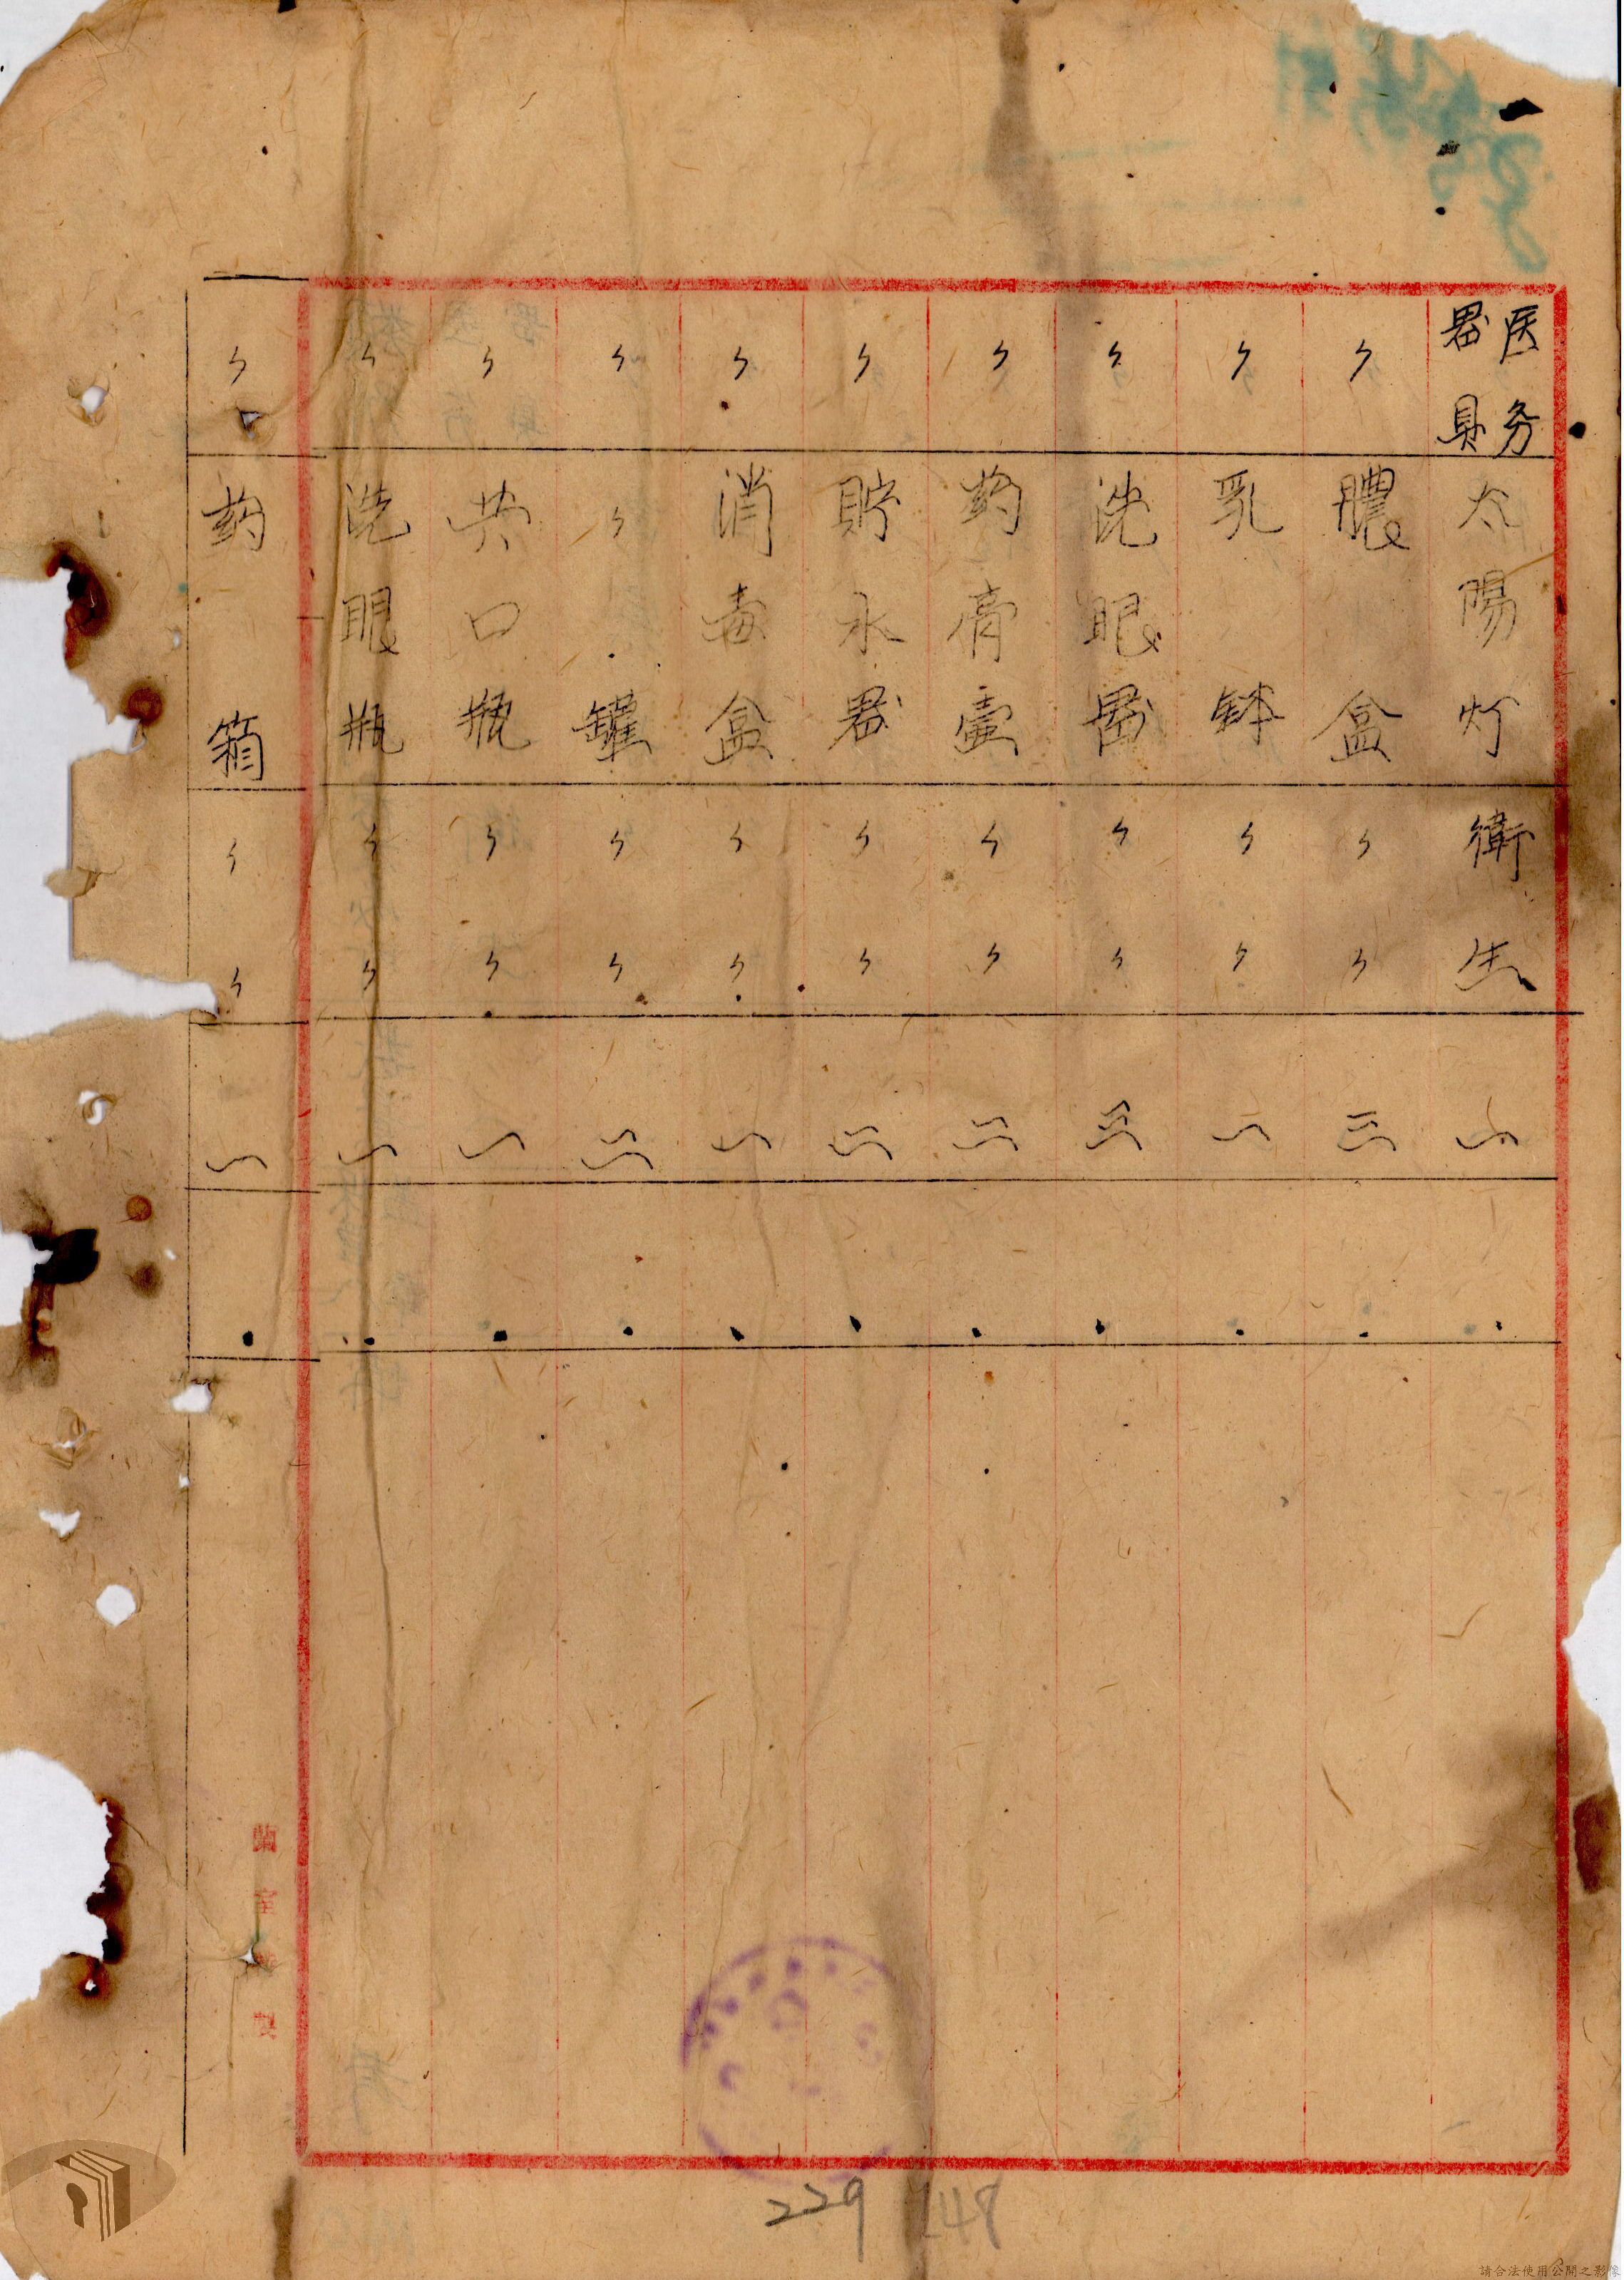 医务器具 太陽灯 衛生 一
〃 膿盒 〃 〃 三
〃 乳鉢 〃 〃 一
〃 洗眼器 〃 〃
〃 药膏壷 〃 〃 二
〃 貯水器 〃 〃 二
〃 消毒盒 〃 〃 一
〃 〃罐 〃 〃 二
〃 共口瓶 〃 〃 一
〃 洗眼瓶 〃 〃 一
〃 药箱 〃 〃 一
蘭室製
229
148
請合法使用公開之影像